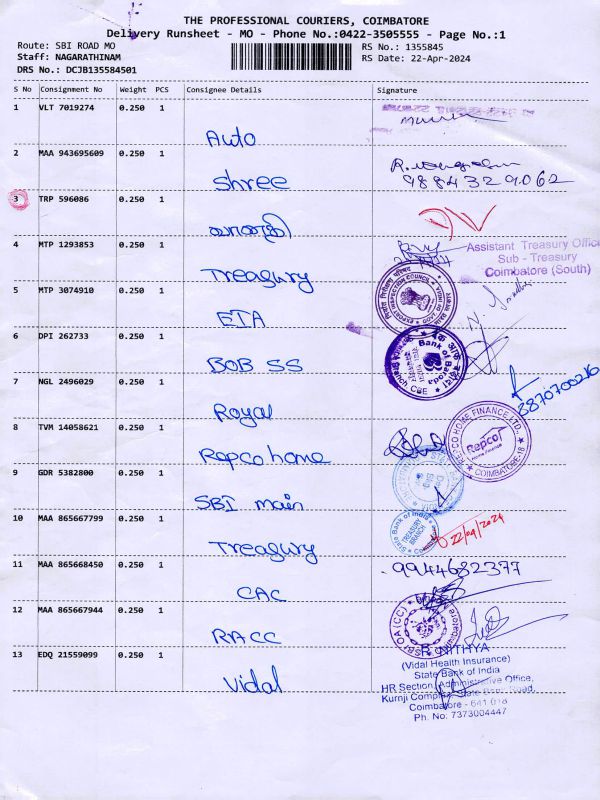 THE PROFESSIONAL COURIERS, COIMBATORE
Delivery Runsheet - MO - Phone No.:0422-3505555 - Page No.:1
Route: SBI ROAD MO
RS No.: 1355845
Staff: NAGARATHINAM
RS Date: 22-Apr-2024
DRS No.: DCJB135584501
S No Consignment No Weight PCS Consignee Details Signature
1 VLT 7019274 0.250 1
Auto
2 MAA 943695609 0.250 1
Shree
9884329062
3 TRP 596086 0.250 1
4 MTP 1293853 0.250 1
Treasury
Assistant Treasury Office
Sub - Treasury
Coimbatore (South)
5 MTP 3074910 0.250 1
EIA
EXPORT INSPECTION COUNCIL
6 DPI 262733 0.250 1
BOB SS
Bank of Baroda
7 NGL 2496029 0.250 1
Royal
8 TVM 14058621 0.250 1
Repco home
REPCO HOME FINANCE LTD.
Repco
COIMBATORE-18
9 GDR 5382800 0.250 1
SBI main
10 MAA 865667799 0.250 1
Treasury
State Bank of India
TREASURY
BRANCH
22/04/2024
11 MAA 865668450 0.250 1
CAC
9944682377
12 MAA 865667944 0.250 1
RACC
13 EDQ 21559099 0.250 1
Vidal
R. NITHYA
(Vidal Health Insurance)
State Bank of India
HR Section, Administrative Office,
Kurnji Complex, State Bank Road,
Coimbatore - 641 018
Ph. No: 7373004447